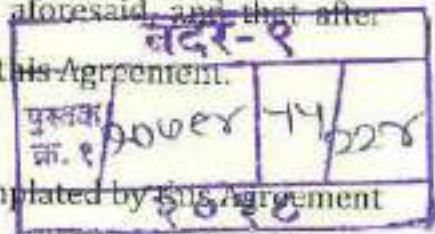 aforesaid, and that after
बदर-१
this Agreement.
पुस्तक
क्र. १ ५५ २२४
mplated by this Agreement
२०१८